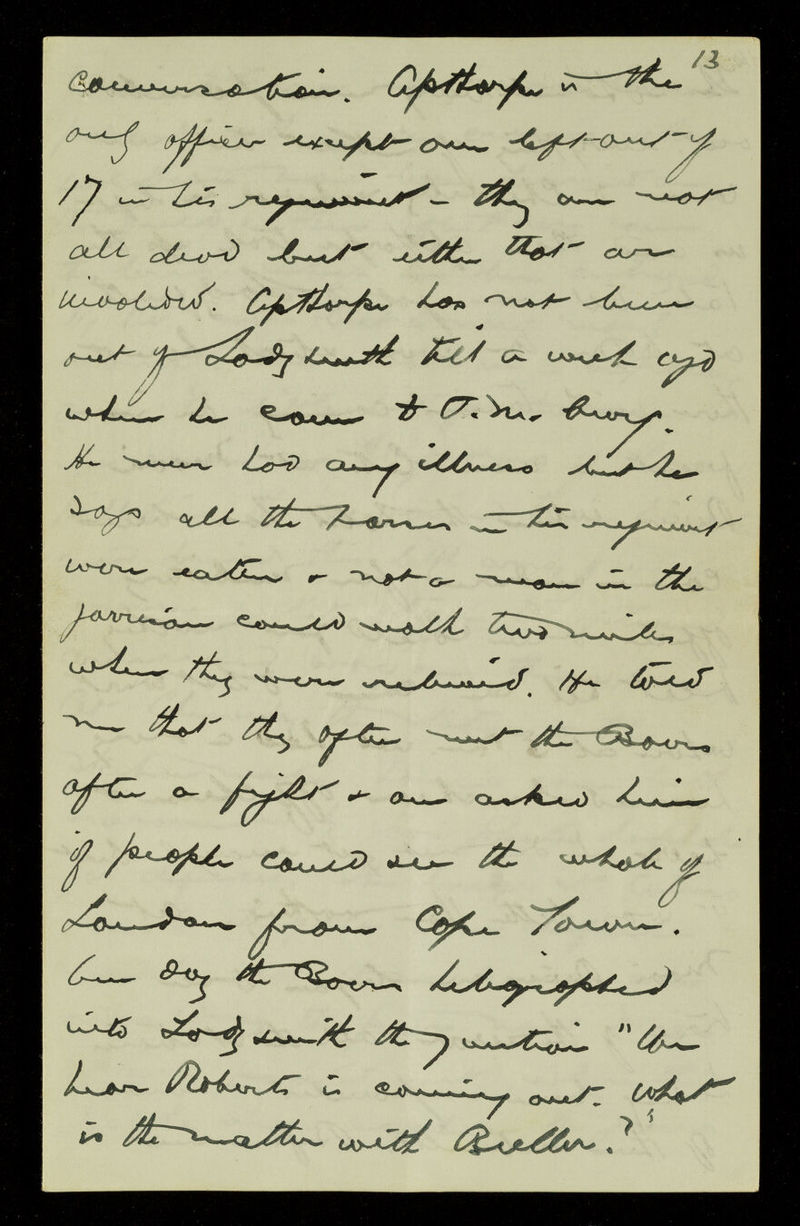 13
conversation. Apthorpe is the
only officer except one left out of
17 in his regiment - they are not
all dead but either that or
invalided. Apthorpe has not been
out of Ladysmith till a week ago
when he came to P.M. Burg.
He never had any illness but he
says all the horses in his regiment
were eaten & not a man in the
garrison could walk two miles
when they were relieved. He told
me that they often met the Boers
after a fight & one asked him
if people could see the whole of
London from Cape Town.
One day the Boers heliographed
into Ladysmith the question "We
hear Roberts is coming out. What
is the matter with Buller?"